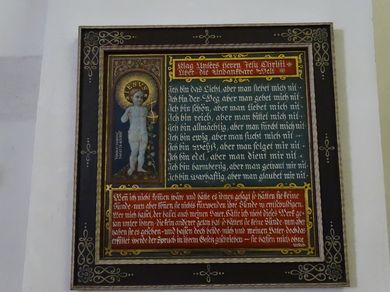 Klag Unsers Herrn Jesu Christi
Uber die Undankbare Welt
Ich bin das Licht, aber man siehet mich nit
Ich bin der Weg aber man gehet mich nit
Ich bin schön, aber man liebet mich nit
Ich bin reich, aber man bittet mich nit
Ich bin allmächtig, aber man fürcht mich nit
Ich bin ewig, aber man sucht mich nit
Ich bin weyß, aber man folget mir nit
Ich bin edel, aber man dient mir nit
Ich bin barmherzig, aber man getraut mir nit
Ich bin warhafftig, aber man glaubet mir nit
Wen ich nicht komen wäre und hätte es ihnen gesagt so hätten sie keine
Sünde nun aber können sie nichts fürwenden ihre Sünde zu entschuldigen.
Wer mich hasset, der hasset auch meinen Vater. Hätte ich nicht diese Werk ge-
tan unter ihnen die kein anderer getan hat so hätten sie keine Sünde nun aber
haben sie es gesehen und hassen doch beide mich und meinen Vater doch das
erfüllet werde der Spruch in ihrem Gesetz geschrieben sie hassen mich ohne